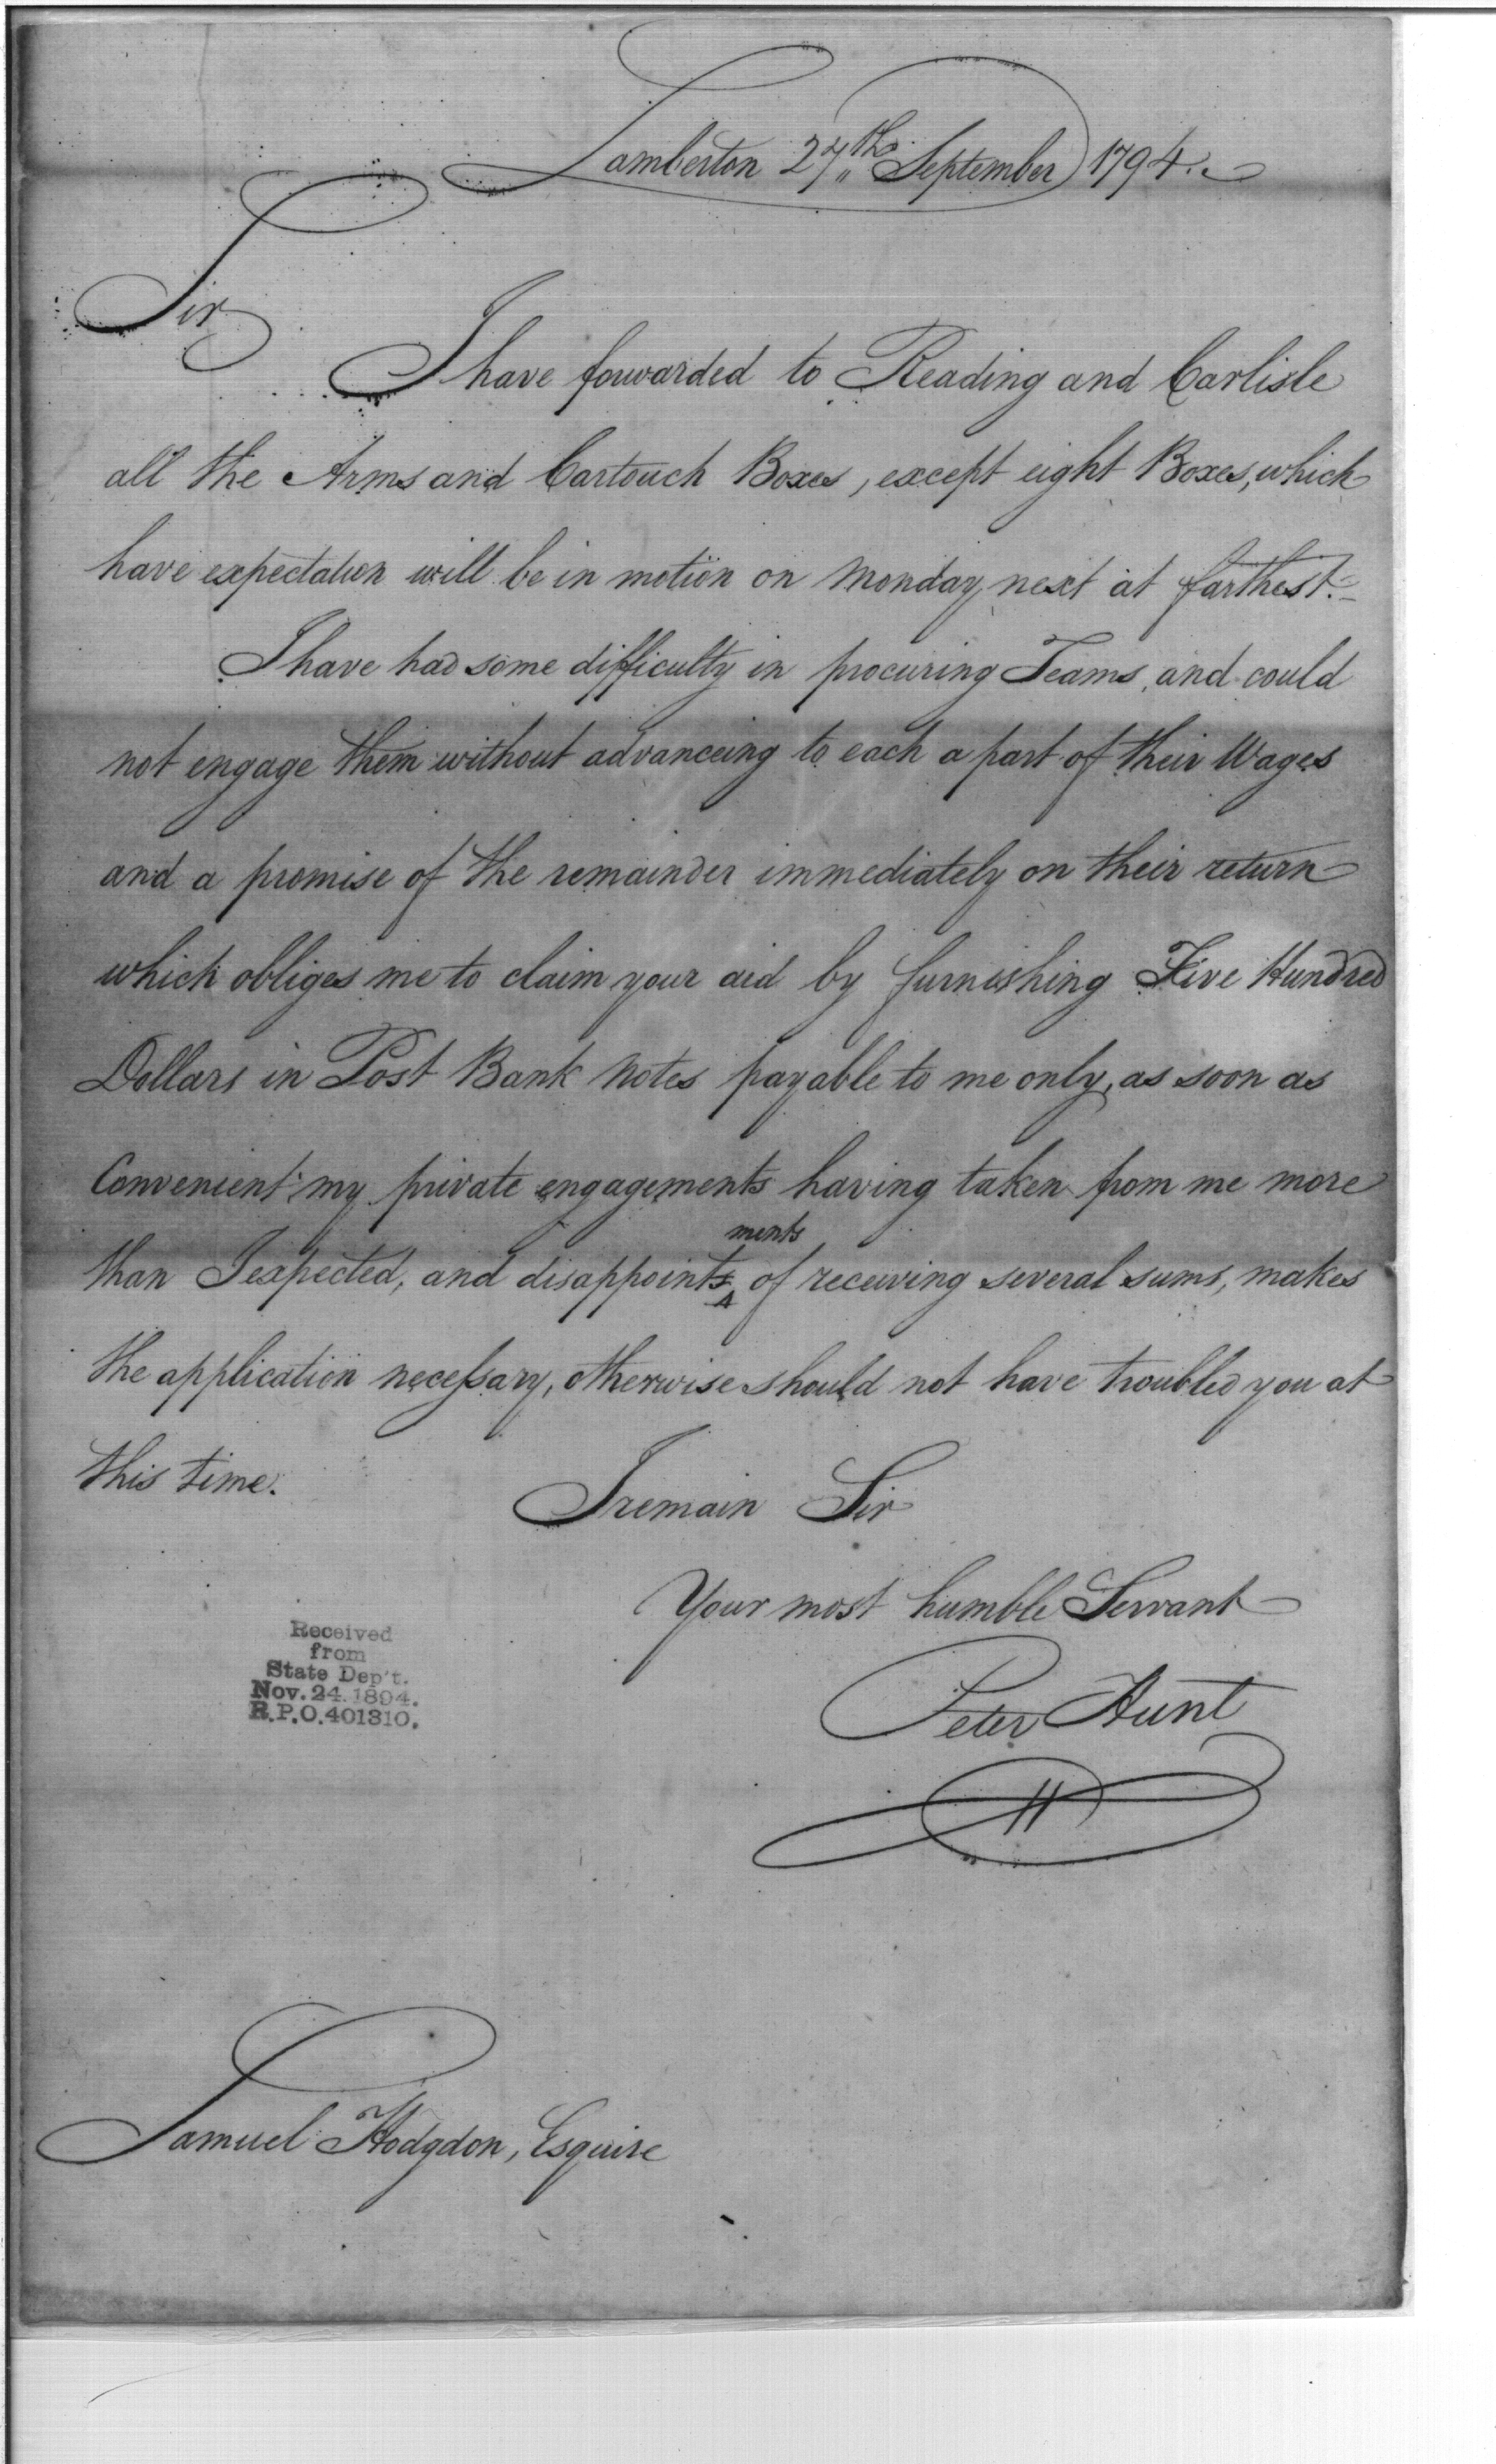 Lamberton 27th September 1794.
Sir
I have forwarded to Reading and Carlisle
all the Arms and Cartouch Boxes, except eight Boxes, which
have expectation will be in motion on Monday next at farthest.
I have had some difficulty in procuring Teams, and could
not engage them without advanceing to each a part of their Wages
and a promise of the remainder immediately on their return
which obliges me to claim your aid by furnishing Five Hundred
Dollars in Post Bank Notes payable to me only, as soon as
Convenient my private engagements having taken from me more
ments
than I expected, and disappoints of receiving several sums, makes
the application necessary, otherwise should not have troubled you at
this time.
I remain Sir
Your most humble Servant
Peter Hunt
Received
from
State Dep't.
Nov. 24. 1894.
R.P.O. 401310.
Samuel Hodgdon, Esquire